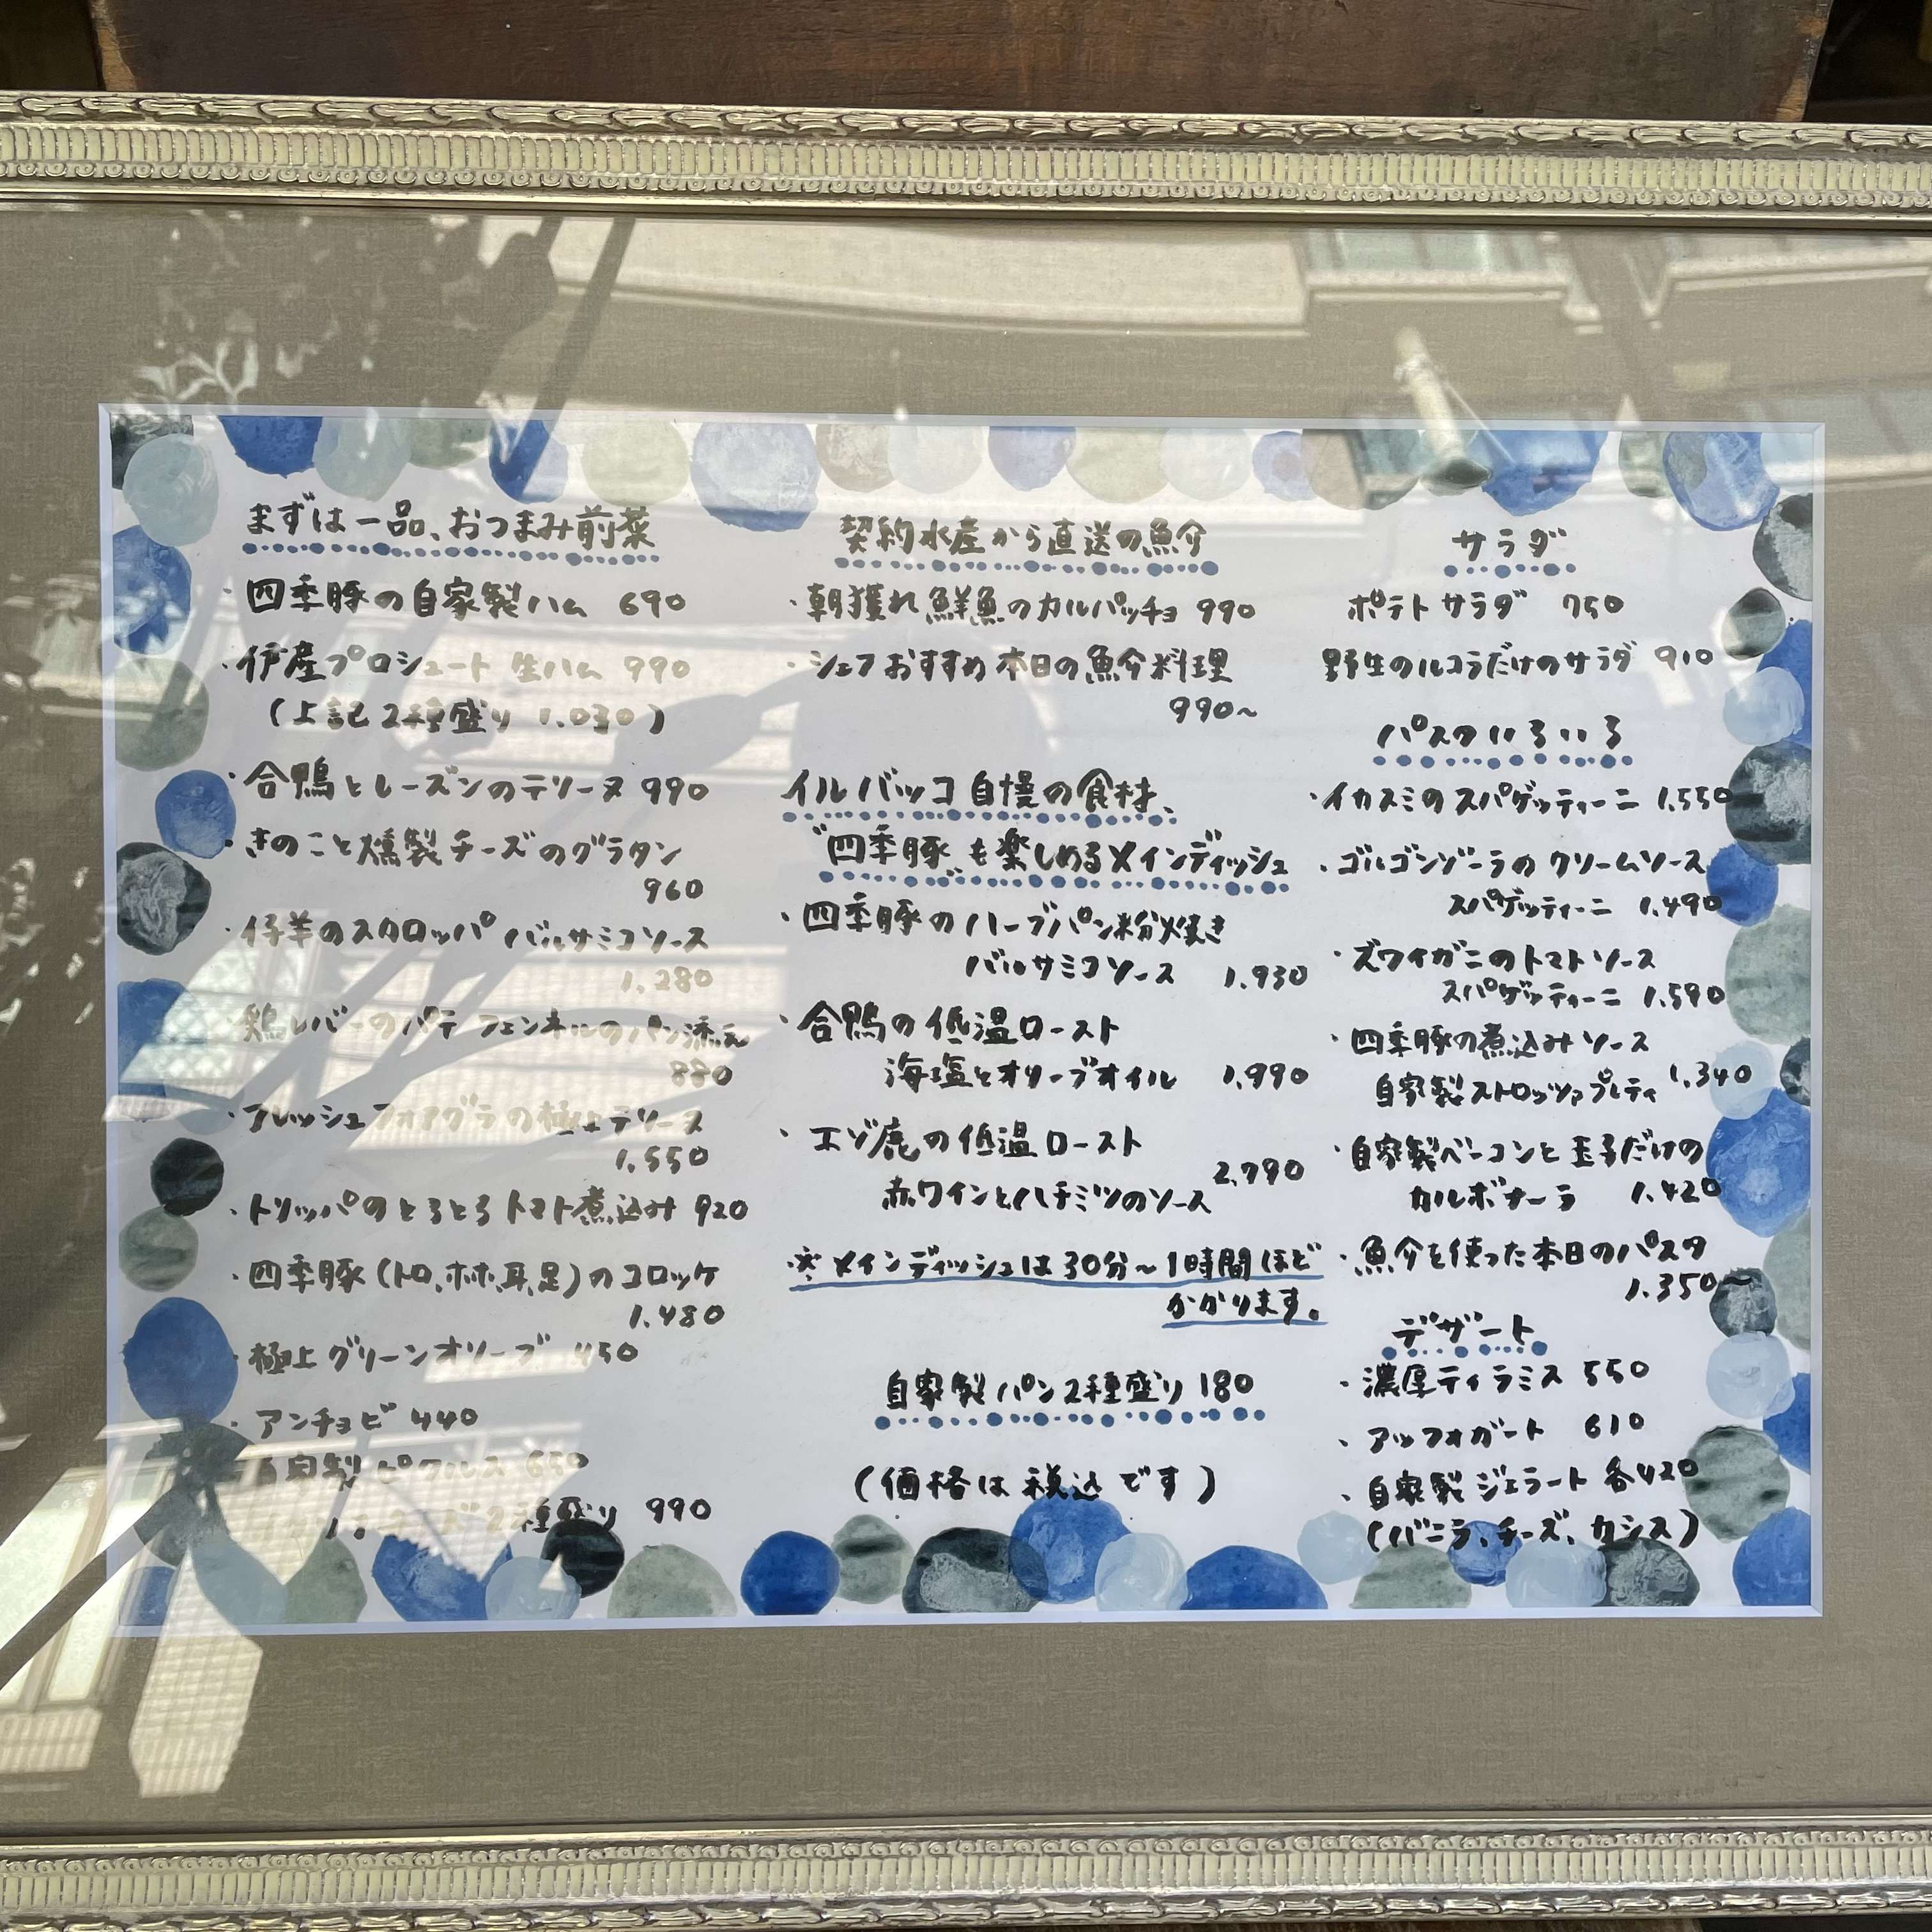 まずは一品、おつまみ前菜
・四季豚の自家製ハム 690
・伊産プロシュート 生ハム 990
(上記2種盛り 1.030)
・合鴨とレーズンのテリーヌ 990
・きのこと燻製チーズのグラタン
960
・仔羊のスクロッパ バルサミコソース
1.280
・鶏レバーのパテ フェンネルのパン添え
880
・フレッシュフォアグラの極上テリーヌ
1.550
・トリッパのとろとろトマト煮込み 920
・四季豚(トロ、ホホ、耳、足)のコロッケ
1.480
・極上グリーンオリーブ 450
・アンチョビ 440
自家製ピクルス 650
2種盛り 990
契約水産から直送の魚介
・朝獲れ鮮魚のカルパッチョ 990
・シェフおすすめ本日の魚介料理
990~
イルバッコ自慢の食材、
"四季豚"も楽しめるメインディッシュ
・四季豚のハーブパン粉焼き
バルサミコソース 1.930
・合鴨の低温ロースト
海塩とオリーブオイル 1.990
・エゾ鹿の低温ロースト
赤ワインとハチミツのソース 2.790
※メインディッシュは30分~1時間ほど
かかります。
自家製パン2種盛り 180
(価格は税込です)
サラダ
ポテトサラダ 750
野生のルコラだけのサラダ 910
パスタいろいろ
・イカスミのスパゲッティーニ 1.550
・ゴルゴンゾーラのクリームソース
スパゲッティーニ 1.490
・ズワイガニのトマトソース
スパゲッティーニ 1.590
・四季豚の煮込みソース
自家製ストロッツァプレティ 1.340
・自家製ベーコンと玉子だけの
カルボナーラ 1.420
・魚介を使った本日のパスタ
1.350~
デザート
・濃厚ティラミス 550
・アッフォガート 610
・自家製ジェラート 各420
(バニラ、チーズ、カシス)